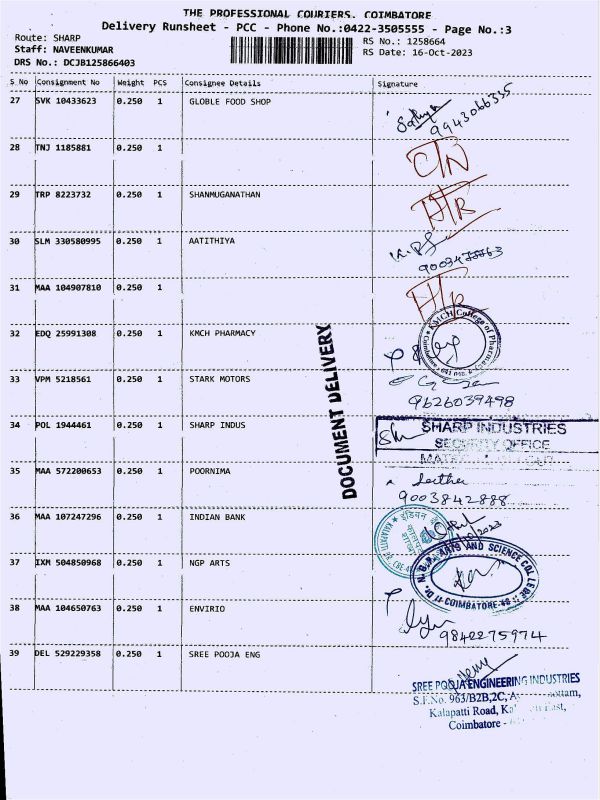 THE PROFESSIONAL COURIERS. COIMBATORE
Delivery Runsheet - PCC - Phone No.:0422-3505555 - Page No.:3
Route: SHARP
Staff: NAVEENKUMAR
DRS No.: DCJB125866403
RS No.: 1258664
RS Date: 16-Oct-2023
S No Consignment No Weight PCS Consignee Details Signature
27 SVK 10433623 0.250 1 GLOBLE FOOD SHOP
9943066335
28 TNJ 1185881 0.250 1
29 TRP 8223732 0.250 1 SHANMUGANATHAN
30 SLM 330580995 0.250 1 AATITHIYA
31 MAA 104907810 0.250 1
32 EDQ 25991308 0.250 1 KMCH PHARMACY
KMCH College of
33 VPM 5218561 0.250 1 STARK MOTORS
9626039498
34 POL 1944461 0.250 1 SHARP INDUS
SHARP INDUSTRIES
SECURITY OFFICE
35 MAA 572200653 0.250 1 POORNIMA
9003842888
36 MAA 107247296 0.250 1 INDIAN BANK
37 IXM 504850968 0.250 1 NGP ARTS
Dr. N.G.P. ARTS AND SCIENCE COLLEGE
COIMBATORE-48
38 MAA 104650763 0.250 1 ENVIRIO
9842275974
39 DEL 529229358 0.250 1 SREE POOJA ENG
SREE POOJA ENGINEERING INDUSTRIES
S.F.No. 963/B2B,2C,
Kalapatti Road,
Coimbatore -
DOCUMENT DELIVERY